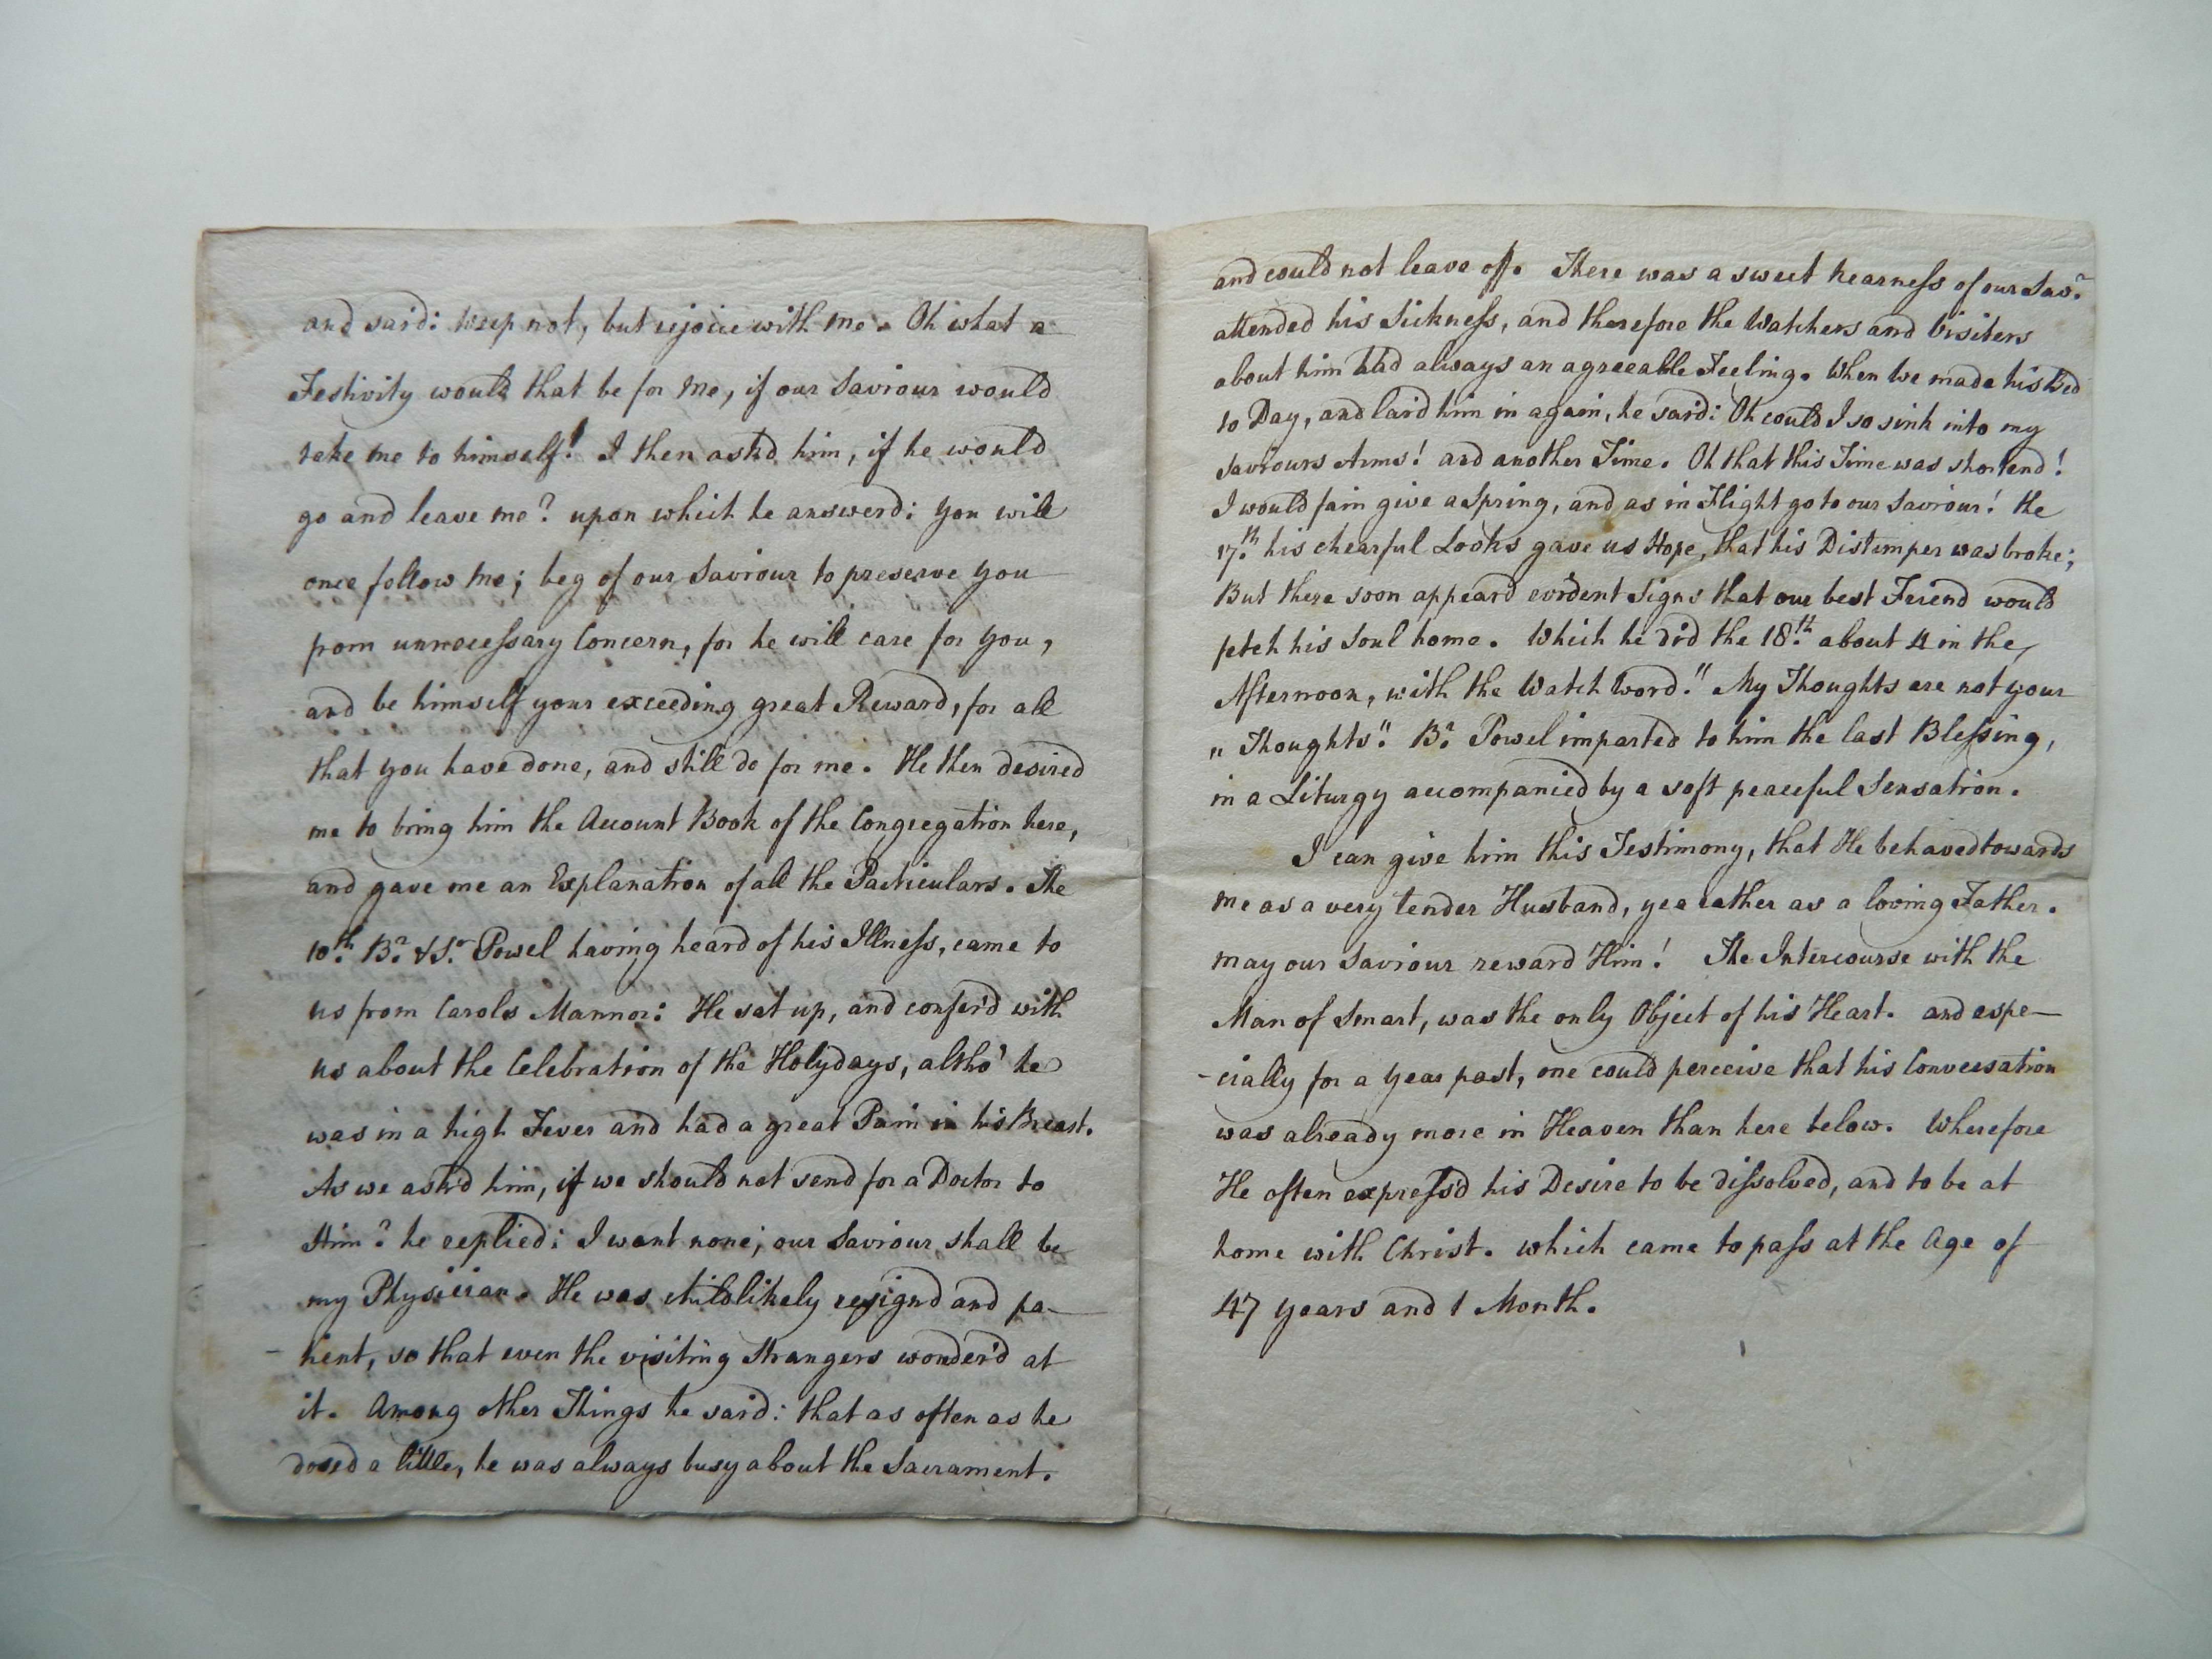 and said: weep not, but rejoice with me. Oh what a
Festivity would that be for me, if our Saviour would
take me to himself! I then ask'd him, if he would
go and leave me? upon which he answerd: you will
once follow me; beg of our Saviour to preserve you
from unnecessary Concern, for he will care for you,
and be himself your exceeding great Reward, for all
that you have done, and still do for me. He then desired
me to bring him the Account Book of the Congregation here,
and gave me an Explanation of all the Particulars. The
10th Br. & Sr. Powel having heard of his Illness, came to
us from Carols Mannor: He sat up, and confer'd with
us about the Celebration of the Holydays, altho' he
was in a high Fever and had a great Pain in his Breast.
As we ask'd him, if we should not send for a Doctor to
Him? he replied: I want none; our Saviour shall be
my Physician. He was childlikely resignd and pa-
-tient, so that even the visiting Strangers wonder'd at
it. Among other Things he said: that as often as he
dosed a little, he was always busy about the Sacrament.
and could not leave off. There was a sweet nearness of our Savr.
attended his Sickness, and therefore the Watchers and Visiters
about him had always an agreeable Feeling. When we made his Bed
to Day, and laid him in again, he said: Oh could I so sink into my
Saviours Arms! and another Time. Oh that this Time was shortend!
I would fain give a Spring, and as in Flight go to our Saviour! the
17th. his chearful Looks gave us Hope, that his Distemper was broke;
But there soon appeard evident Signs that our best Friend would
fetch his Soul home. Which he did the 18th. about 4 in the
Afternoon, with the Watch Word." My Thoughts are not your
" Thoughts". Br. Powel imparted to him the last Blessing,
in a Liturgy accompanied by a soft peaceful Sensation.
I can give him this Testimony, that He behaved towards
me as a very tender Husband, yea rather as a loving Father.
may our Saviour reward Him! The Intercourse with the
Man of Smart, was the only Object of his Heart. and espe-
-cially for a year past, one could perceive that his Conversation
was already more in Heaven than here below. Wherefore
He often express'd his Desire to be dissolved, and to be at
home with Christ. which came to pass at the Age of
47 years and 1 Month.